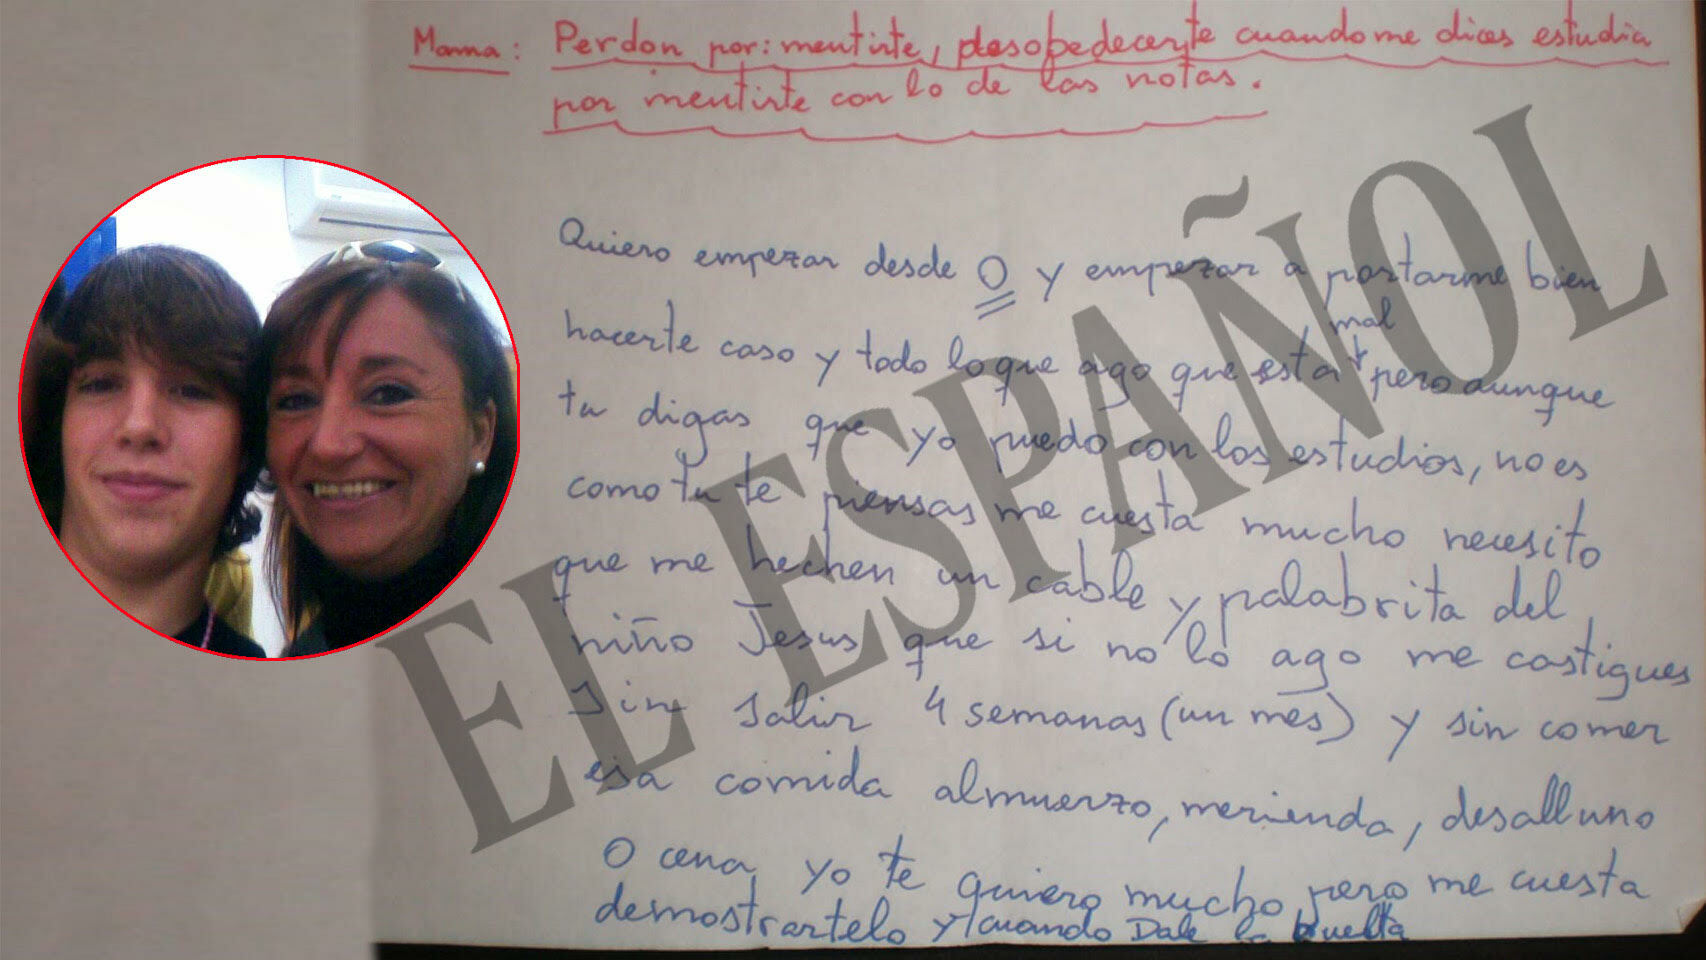 Mama: Perdon por: mentirte, desobedecerte cuando me dices estudia
por mentirte con lo de las notas.
Quiero empezar desde 0 y empezar a portarme bien
hacerte caso y todo lo que ago que esta mal pero aunque
tu digas que yo puedo con los estudios, no es
como tu te piensas me cuesta mucho necesito
que me hechen un cable y palabrita del
niño Jesus que si no lo ago me castigues
sin salir 4 semanas (un mes) y sin comer
esa comida almuerzo, merienda, desalluno
O cena, yo te quiero mucho pero me cuesta
demostrartelo y cuando Dale la buelta
EL ESPAÑOL